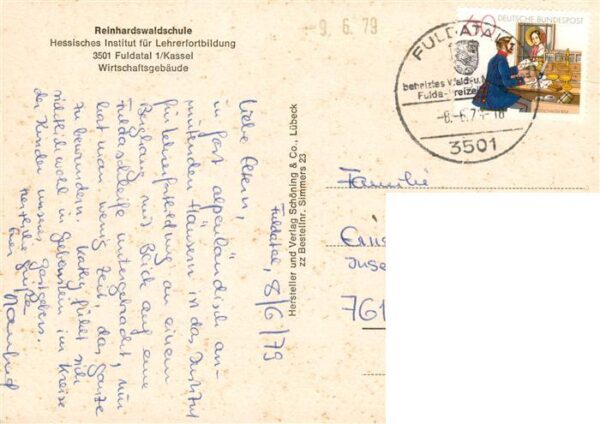 Reinhardswaldschule
Hessisches Institut für Lehrerfortbildung
3501 Fuldatal 1/Kassel
Wirtschaftsgebäude
-9. 6. 79
FULDATAL
beheiztes Wald-u.
Fulda-
-8.-6.79-18
3501
60
DEUTSCHE BUNDESPOST
Fuldatal, 8/6/79
Liebe Eltern,
in fast alpenländisch an-
mutenden Häusern ist das Institut
für Lehrerfortbildung an einem
Berghang mit Blick auf eine
Fuldaschleife untergebracht, nur
hat man wenig Zeit, das ganze
zu bewundern. Kathy fühlt sich
wohl in im Kreise
der Kinder unseres Gastgebers.
Herzliche Grüße
Euer Manfred
Hersteller und Verlag Schöning & Co., Lübeck
zz Bestellnr. Simmers 23
Familie
761